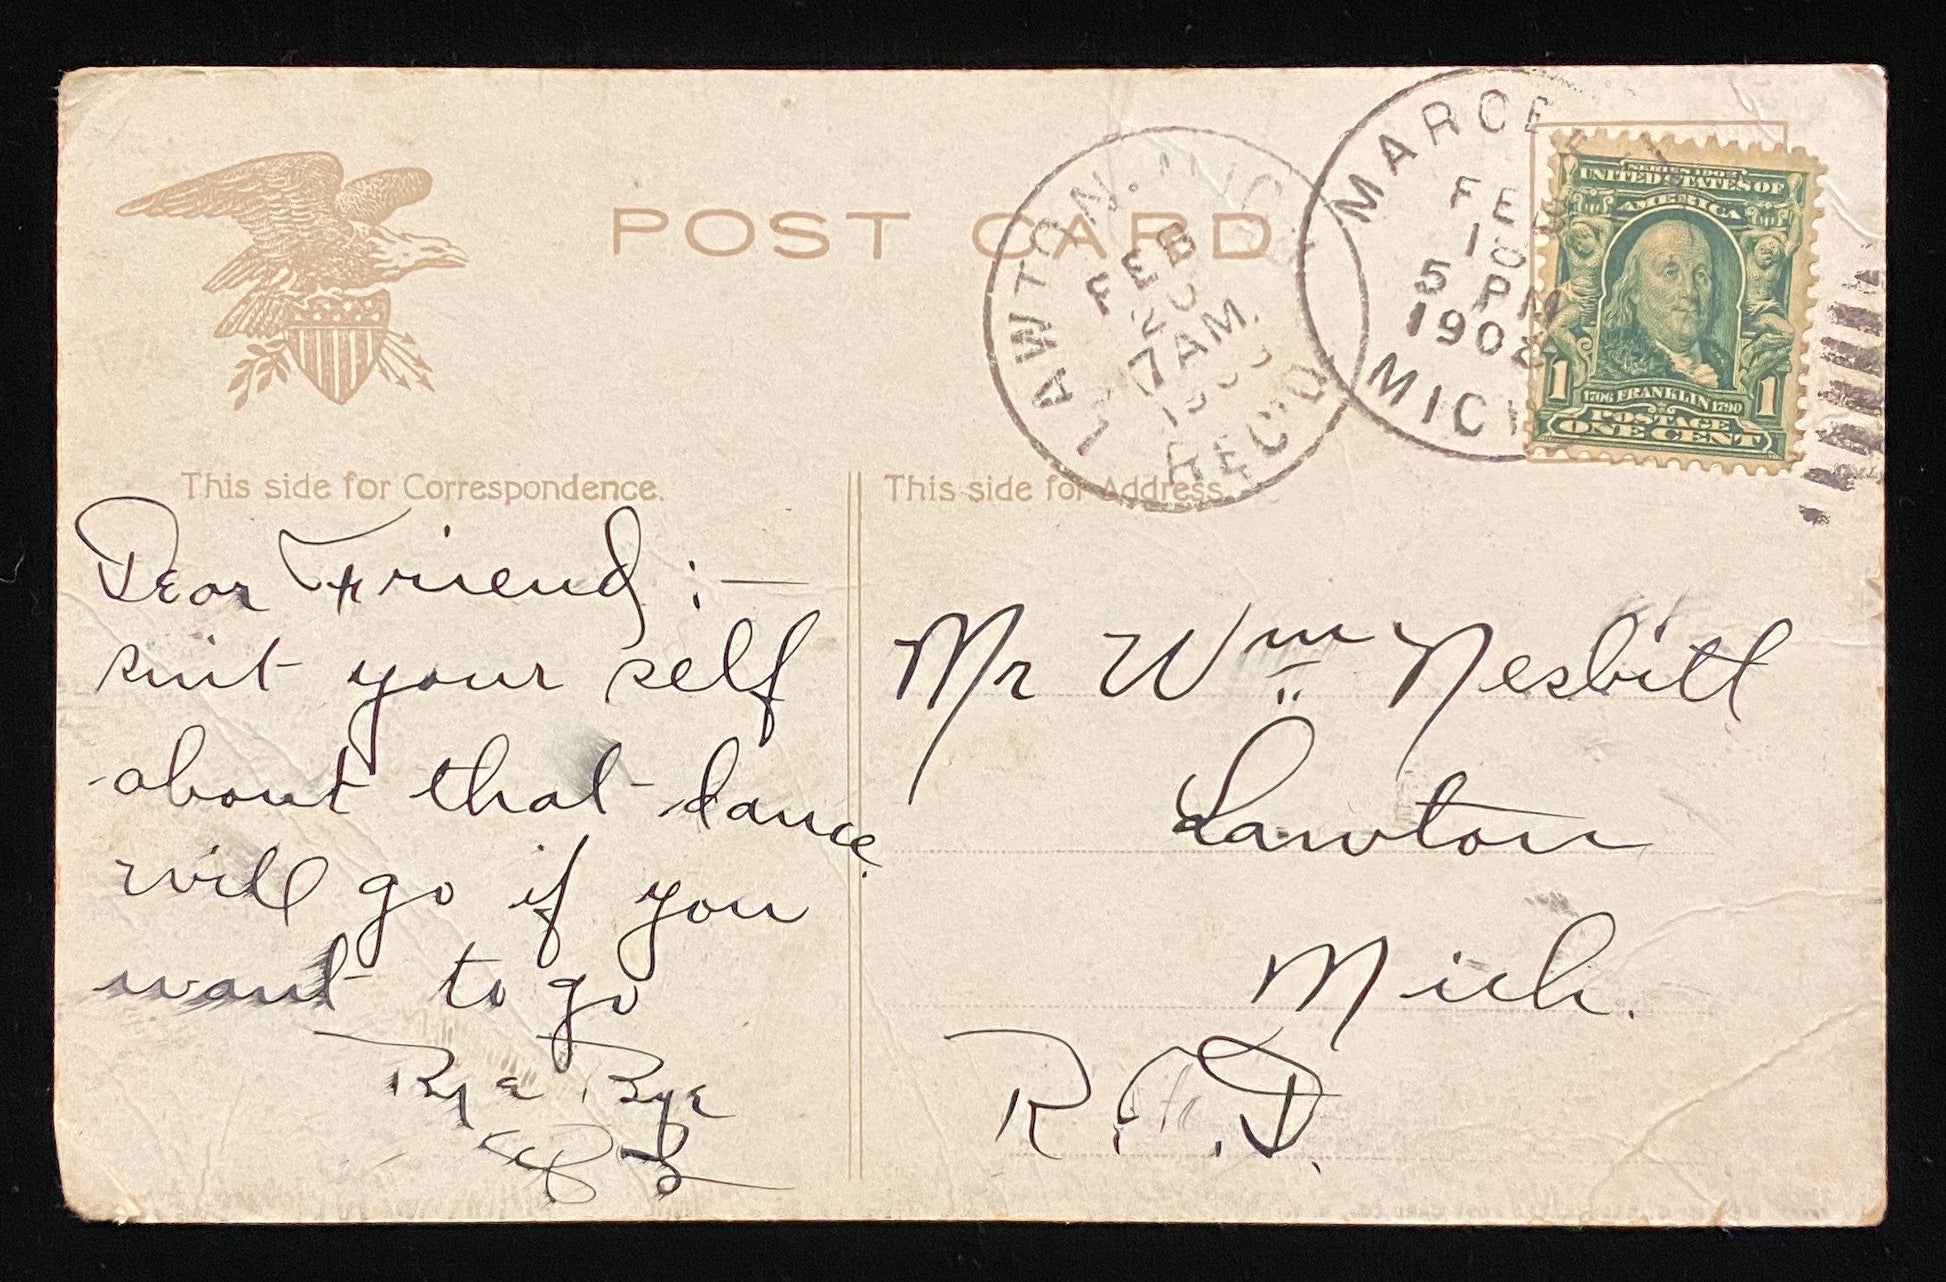 POST CARD
LAWTON. MICH.
FEB
7 AM.
REC'D.
MARCE
FEB
18
5 PM
190
MICH
SERIES 1902
UNITED STATES OF
AMERICA
1706 FRANKLIN 1790
1 1
POSTAGE
ONE CENT
This side for Correspondence.
This side for Address.
Dear Friend :—
suit your self
about that dance.
will go if you
want to go
Bye Bye
Mr Wm Nesbitt
Lawton
Mich.
R.F.D.